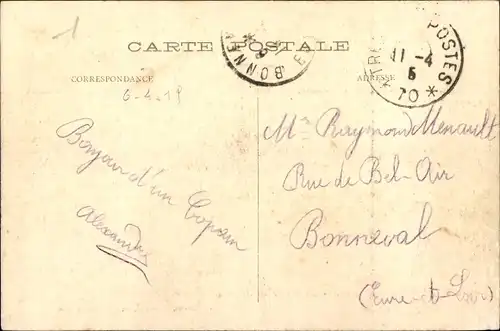 1
CARTE POSTALE
CORRESPONDANCE
ADRESSE
6-4-19
Bonjour d'un Copain
Alexandre
BONNEV
POSTES
11-4
5
70 *
Mr Raymond Menault
Rue de Bel-Air
Bonneval
(Eure-et-Loir)